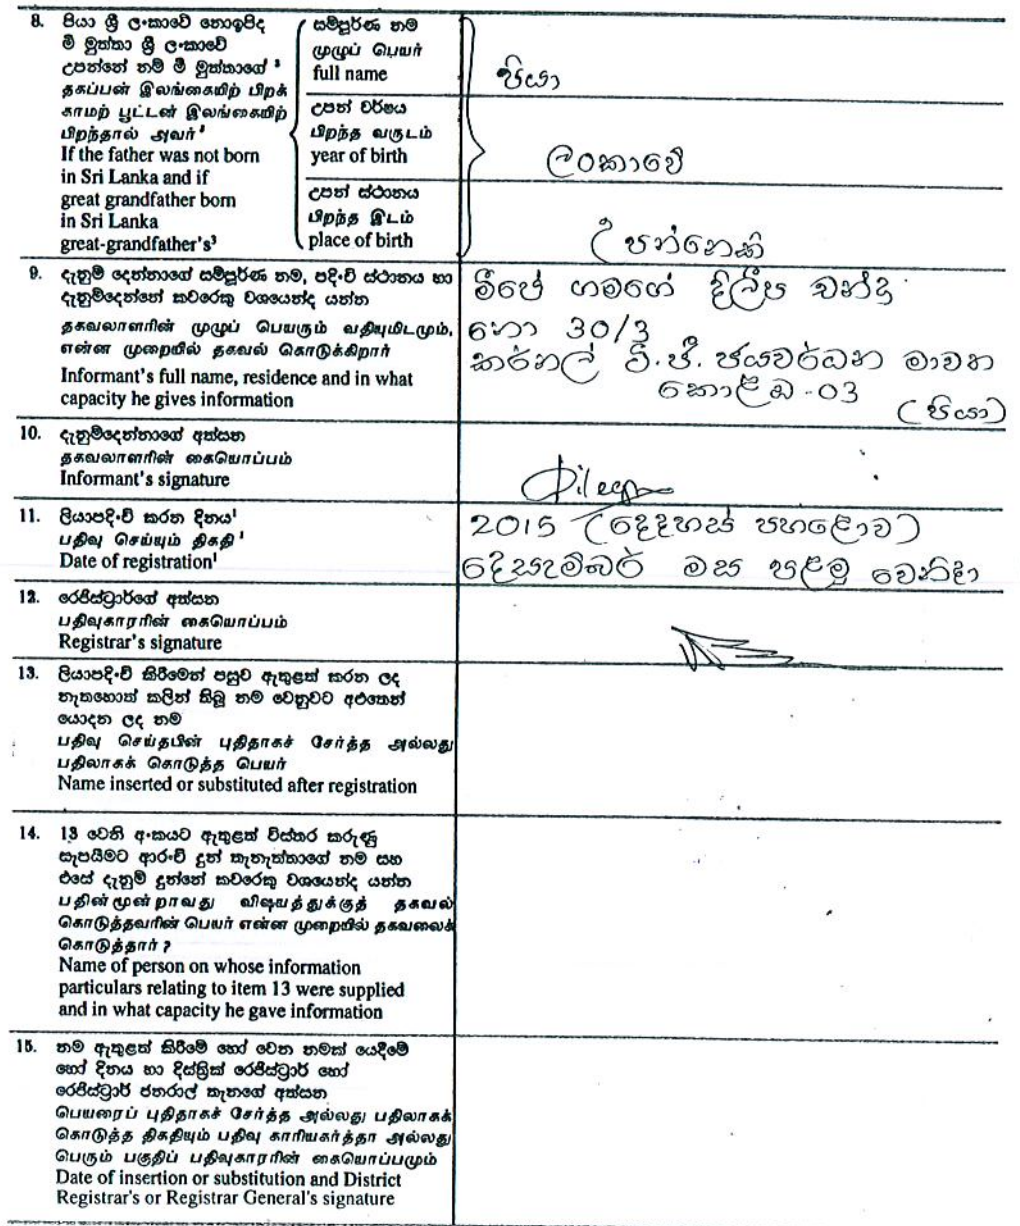 8. පියා ශ්‍රී ලංකාවේ නොඉපිද
මී මුත්තා ශ්‍රී ලංකාවේ
උපන්නේ නම් මී මුත්තාගේ ³
தகப்பன் இலங்கையிற் பிறக்
காமற் பூட்டன் இலங்கையிற்
பிறந்தால் அவர் ³
If the father was not born
in Sri Lanka and if
great grandfather born
in Sri Lanka
great-grandfather's³
සම්පූර්ණ නම
முழுப் பெயர்
full name
පියා
උපන් වර්ෂය
பிறந்த வருடம்
year of birth
ලංකාවේ
උපන් ස්ථානය
பிறந்த இடம்
place of birth
උපන්නෙකි
9. දැනුම් දෙන්නාගේ සම්පූර්ණ නම, පදිංචි ස්ථානය හා
දැනුම්දෙන්නේ කවරෙකු වශයෙන්ද යන්න
தகவலாளரின் முழுப் பெயரும் வதியுமிடமும்,
என்ன முறையில் தகவல் கொடுக்கிறார்
Informant's full name, residence and in what
capacity he gives information
මීපේ ගමගේ දිලීප චන්ද්‍ර
නො 30/3
කර්නල් ටී.ජී. ජයවර්ධන මාවත
කොළඹ - 03
(පියා)
10. දැනුම්දෙන්නාගේ අත්සන
தகவலாளரின் கையொப்பம்
Informant's signature
11. ලියාපදිංචි කරන දිනය¹
பதிவு செய்யும் திகதி ¹
Date of registration¹
2015 (දෙදහස් පහළොව)
දෙසැම්බර් මස පළමු වෙනිදා
12. රෙජිස්ට්‍රාර්ගේ අත්සන
பதிவுகாரரின் கையொப்பம்
Registrar's signature
13. ලියාපදිංචි කිරීමෙන් පසුව ඇතුළත් කරන ලද
නැතහොත් කලින් තිබූ නම වෙනුවට අළුතෙන්
යොදන ලද නම
பதிவு செய்தபின் புதிதாகச் சேர்த்த அல்லது
பதிலாகக் கொடுத்த பெயர்
Name inserted or substituted after registration
14. 13 වෙනි අංකයට ඇතුළත් විස්තර කරුණු
සැපයීමට ආරංචි දුන් තැනැත්තාගේ නම සහ
එසේ දැනුම් දුන්නේ කවරෙකු වශයෙන්ද යන්න
பதின்மூன்றாவது விஷயத்துக்குத் தகவல்
கொடுத்தவரின் பெயர் என்ன முறையில் தகவலைக்
கொடுத்தார் ?
Name of person on whose information
particulars relating to item 13 were supplied
and in what capacity he gave information
15. නම ඇතුළත් කිරීමේ හෝ වෙන නමක් යෙදීමේ
හෝ දිනය හා දිස්ත්‍රික් රෙජිස්ට්‍රාර් හෝ
රෙජිස්ට්‍රාර් ජනරාල් තැනගේ අත්සන
பெயரைப் புதிதாகச் சேர்த்த அல்லது பதிலாகக்
கொடுத்த திகதியும் பதிவு காரியகர்த்தா அல்லது
பெரும் பகுதிப் பதிவுகாரரின் கையொப்பமும்
Date of insertion or substitution and District
Registrar's or Registrar General's signature